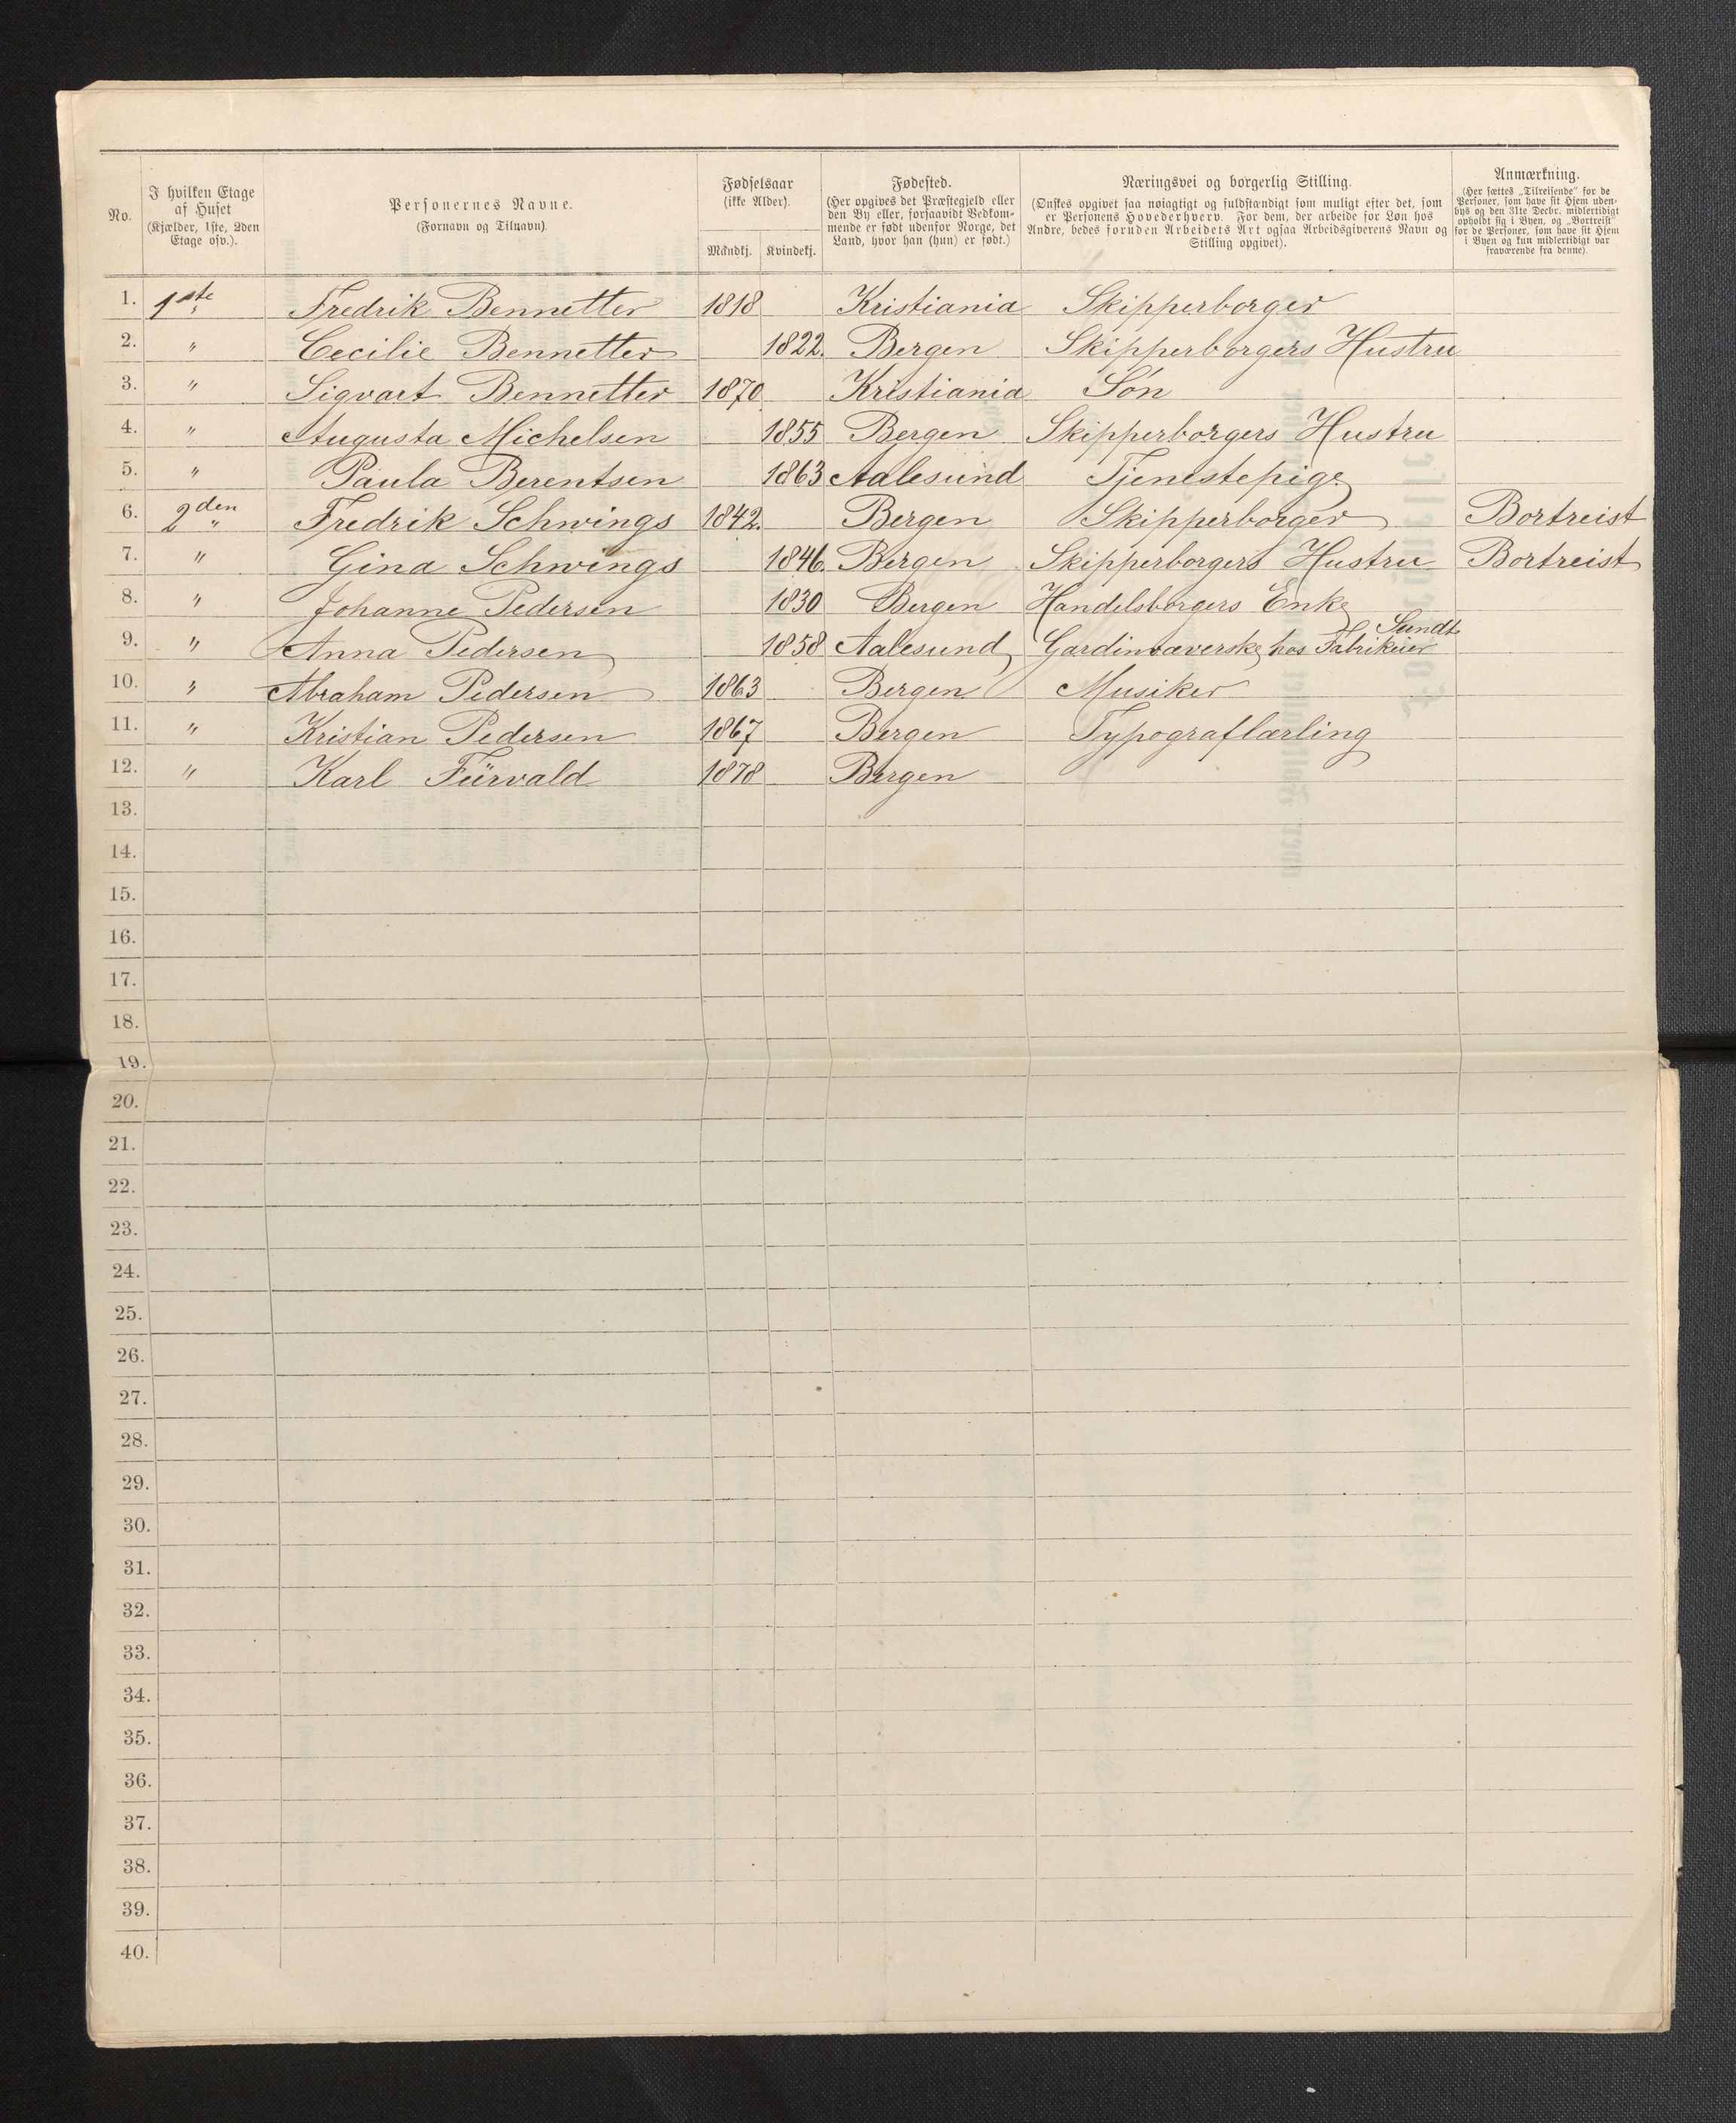 No.
I hvilken Etage af Huset (Kjælder, 1ste, 2den Etage osv.).
Personernes Navne. (Fornavn og Tilnavn).
Fødselsaar (ikke Alder).
Mandkj. Kvindekj.
Fødested. (Her opgives det Præstegjeld eller den By eller, forsaavidt Vedkommende er født udenfor Norge, det Land, hvor han (hun) er født.)
Næringsvei og borgerlig Stilling. (Ønskes opgivet saa nøiagtigt og fuldstændigt som muligt efter det, som er Personens Hovederhverv. For dem, der arbeide for Løn hos Andre, bedes foruden Arbeidets Art ogsaa Arbeidsgiverens Navn og Stilling opgivet).
Anmærkning. (Her sættes „Tilreisende" for de Personer, som have sit Hjem udenbys og den 31te Decbr. midlertidigt opholdt sig i Byen, og „Bortreist" for de Personer, som have sit Hjem i Byen og kun midlertidigt var fraværende fra denne).
1. 1ste Fredrik Bennetter 1818 Kristiania Skipperborger
2. " Cecilie Bennetter 1822. Bergen Skipperborgers Hustru
3. " Sigvart Bennetter 1870 Kristiania Søn
4. " Augusta Michelsen 1855 Bergen Skipperborgers Hustru
5. " Paula Berentsen 1863 Aalesund Tjenestepige
6. 2den " Fredrik Schwings 1842. Bergen Skipperborger Bortreist
7. " Gina Schwings 1846. Bergen Skipperborgers Hustru Bortreist
8. " Johanne Pedersen 1830 Bergen Handelsborgers Enke
9. " Anna Pedersen 1858 Aalesund Gardinvæverske hos Fabrikeier Sundt
10. " Abraham Pedersen 1863 Bergen Musiker
11. " Kristian Pedersen 1867 Bergen Typograflærling
12. " Karl Fürvald 1878 Bergen
13.
14.
15.
16.
17.
18.
19.
20.
21.
22.
23.
24.
25.
26.
27.
28.
29.
30.
31.
32.
33.
34.
35.
36.
37.
38.
39.
40.